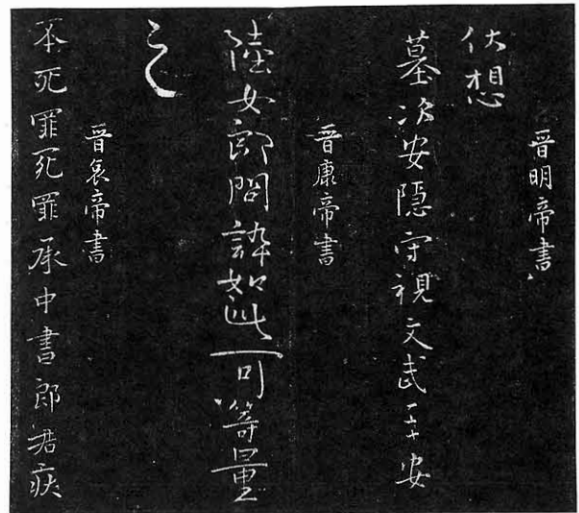 晉明帝書
伏想
墓次安隱守視文武平安
晉康帝書
陸女郎問如此可籌量
之
晉哀帝書
丕死罪死罪承中書郎君疾